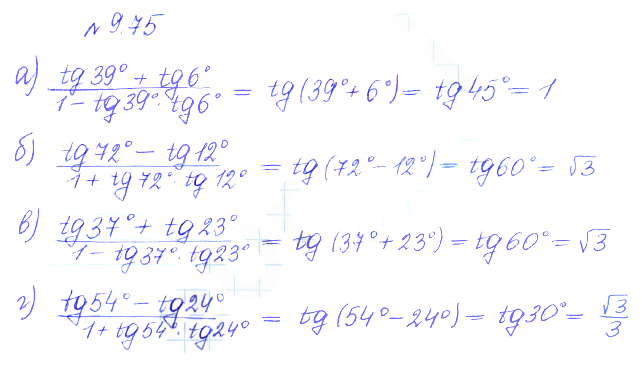 № 9.75
а) (tg 39° + tg 6°) / (1 − tg 39° · tg 6°) = tg (39° + 6°) = tg 45° = 1
б) (tg 72° − tg 12°) / (1 + tg 72° · tg 12°) = tg (72° − 12°) = tg 60° = √3
в) (tg 37° + tg 23°) / (1 − tg 37° · tg 23°) = tg (37° + 23°) = tg 60° = √3
г) (tg 54° − tg 24°) / (1 + tg 54° · tg 24°) = tg (54° − 24°) = tg 30° = √3/3